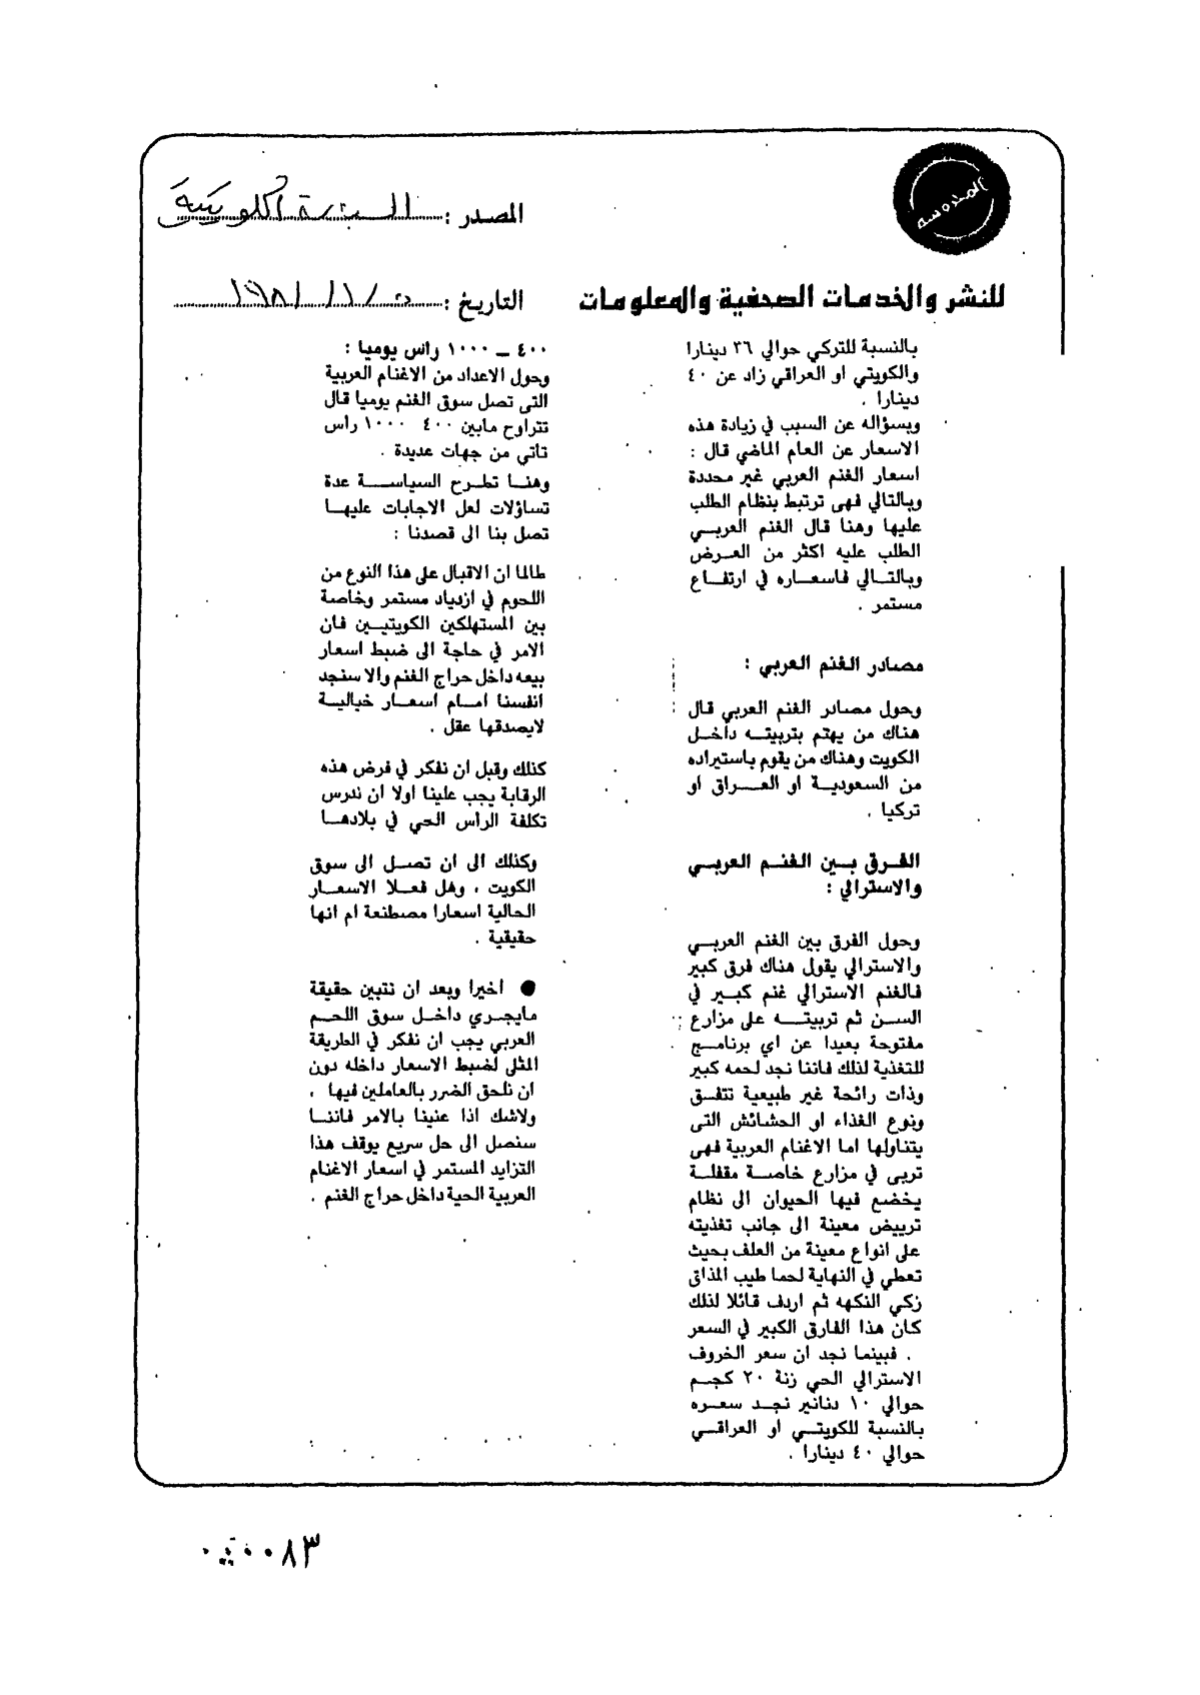 المصدر : السياسة الكويتية
للنشر والخدمات الصحفية والمعلومات
التاريخ :
بالنسبة للتركي حوالي ٣٦ دينارا
والكويتي او العراقي زاد عن ٤٠
دينارا .
وبسؤاله عن السبب في زيادة هذه
الاسعار عن العام الماضي قال :
اسعار الغنم العربي غير محددة
وبالتالي فهى ترتبط بنظام الطلب
عليها وهنا قال الغنم العربي
الطلب عليه اكثر من العرض
وبالتالي فاسعاره في ارتفاع
مستمر .
مصادر الغنم العربي :
وحول مصادر الغنم العربي قال
هناك من يهتم بتربيته داخل
الكويت وهناك من يقوم باستيراده
من السعودية او العراق او
تركيا .
الفرق بين الغنم العربي
والاسترالي :
وحول الفرق بين الغنم العربي
والاسترالي يقول هناك فرق كبير
فالغنم الاسترالي غنم كبير في
السن ثم تربيته على مزارع
مفتوحة بعيدا عن اي برنامج
للتغذية لذلك فاننا نجد لحمه كبير
وذات رائحة غير طبيعية تتفق
ونوع الغذاء او الحشائش التى
يتناولها اما الاغنام العربية فهى
تربى في مزارع خاصة مقفلة
يخضع فيها الحيوان الى نظام
ترييض معينة الى جانب تغذيته
على انواع معينة من العلف بحيث
تعطي في النهاية لحما طيب المذاق
زكي النكهه ثم اردف قائلا لذلك
كان هذا الفارق الكبير في السعر
. فبينما نجد ان سعر الخروف
الاسترالي الحي زنة ٢٠ كجم
حوالي ١٠ دنانير نجد سعره
بالنسبة للكويتي او العراقي
حوالي ٤٠ دينارا .
٤٠٠ ــ ١٠٠٠ راس يوميا :
وحول الاعداد من الاغنام العربية
التى تصل سوق الغنم يوميا قال
تتراوح مابين ٤٠٠ ١٠٠٠ رأس
تاتي من جهات عديدة .
وهنا تطرح السياسة عدة
تساؤلات لعل الاجابات عليها
تصل بنا الى قصدنا :
طالما ان الاقبال على هذا النوع من
اللحوم في ازدياد مستمر وخاصة
بين المستهلكين الكويتيين فان
الامر في حاجة الى ضبط اسعار
بيعه داخل حراج الغنم والا سنجد
انفسنا امام اسعار خيالية
لايصدقها عقل .
كذلك وقبل ان نفكر في فرض هذه
الرقابة يجب علينا اولا ان ندرس
تكلفة الرأس الحي في بلادها
وكذلك الى ان تصل الى سوق
الكويت ، وهل فعلا الاسعار
الحالية اسعارا مصطنعة ام انها
حقيقية .
● اخيرا وبعد ان نتبين حقيقة
مايجري داخل سوق اللحم
العربي يجب ان نفكر في الطريقة
المثلى لضبط الاسعار داخله دون
ان نلحق الضرر بالعاملين فيها ،
ولاشك اذا عنينا بالامر فاننا
سنصل الى حل سريع يوقف هذا
التزايد المستمر في اسعار الاغنام
العربية الحية داخل حراج الغنم .